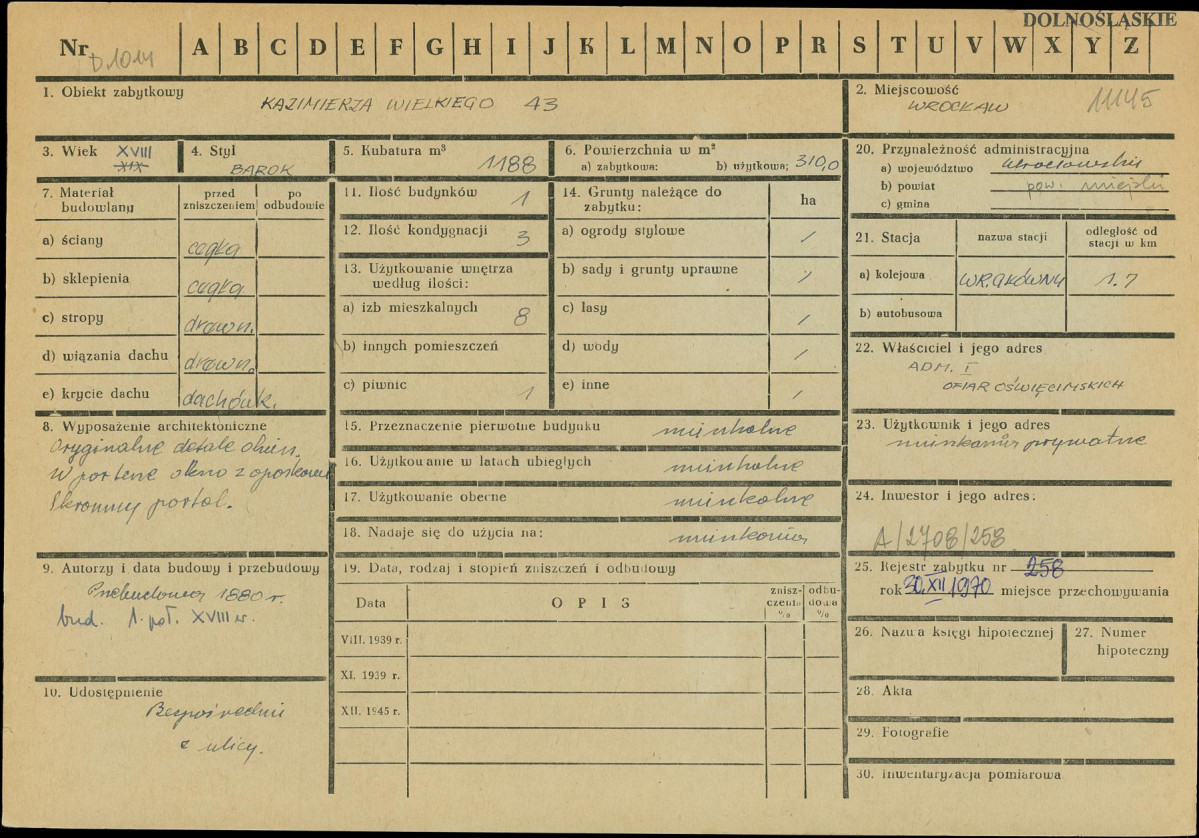 DOLNOŚLĄSKIE
Nr D.1014 A B C D E F G H I J K L M N O P R S T U V W X Y Z
1. Obiekt zabytkowy
KAZIMIERZA WIELKIEGO 43
2. Miejscowość
WROCŁAW 11145
3. Wiek XVIII
XIX
4. Styl
BAROK
5. Kubatura m³
1188
6. Powierzchnia w m²
a) zabytkowa: b) użytkowa: 310,0
7. Materiał budowlany
przed zniszczeniem
po odbudowie
a) ściany cegła
b) sklepienia cegła
c) stropy drewn.
d) wiązania dachu drewn.
e) krycie dachu dachówk.
8. Wyposażenie architektoniczne
Oryginalne detale okien.
W parterze okno z opaskami
Skromny portal.
9. Autorzy i data budowy i przebudowy
Przebudowa 1880 r.
bud. 1. poł. XVIII w.
10. Udostępnienie
Bezpośrednie
z ulicy.
11. Ilość budynków 1
12. Ilość kondygnacji 3
13. Użytkowanie wnętrza
według ilości:
a) izb mieszkalnych 8
b) innych pomieszczeń
c) piwnic 1
14. Grunty należące do
zabytku:
ha
a) ogrody stylowe /
b) sady i grunty uprawne /
c) lasy /
d) wody /
e) inne /
15. Przeznaczenie pierwotne budynku mieszkalne
16. Użytkowanie w latach ubiegłych mieszkalne
17. Użytkowanie obecne mieszkalne
18. Nadaje się do użycia na: mieszkania
19. Data, rodzaj i stopień zniszczeń i odbudowy
Data
O P I S
znisz-
czenia
%
odbu-
dowa
%
VIII. 1939 r.
XI. 1939 r.
XII. 1945 r.
20. Przynależność administracyjna
a) województwo wrocławskie
b) powiat pow. miejski
c) gmina
21. Stacja
nazwa stacji
odległość od
stacji w km
a) kolejowa WR. GŁÓWNY 1.7
b) autobusowa
22. Właściciel i jego adres
ADM. I
OFIAR OŚWIĘCIMSKICH
23. Użytkownik i jego adres
mieszkania prywatne
24. Inwestor i jego adres:
A/2708/258
25. Rejestr zabytku nr 258
rok 30.XII.1970 miejsce przechowywania
26. Nazwa księgi hipotecznej
27. Numer
hipoteczny
28. Akta
29. Fotografie
30. Inwentaryzacja pomiarowa